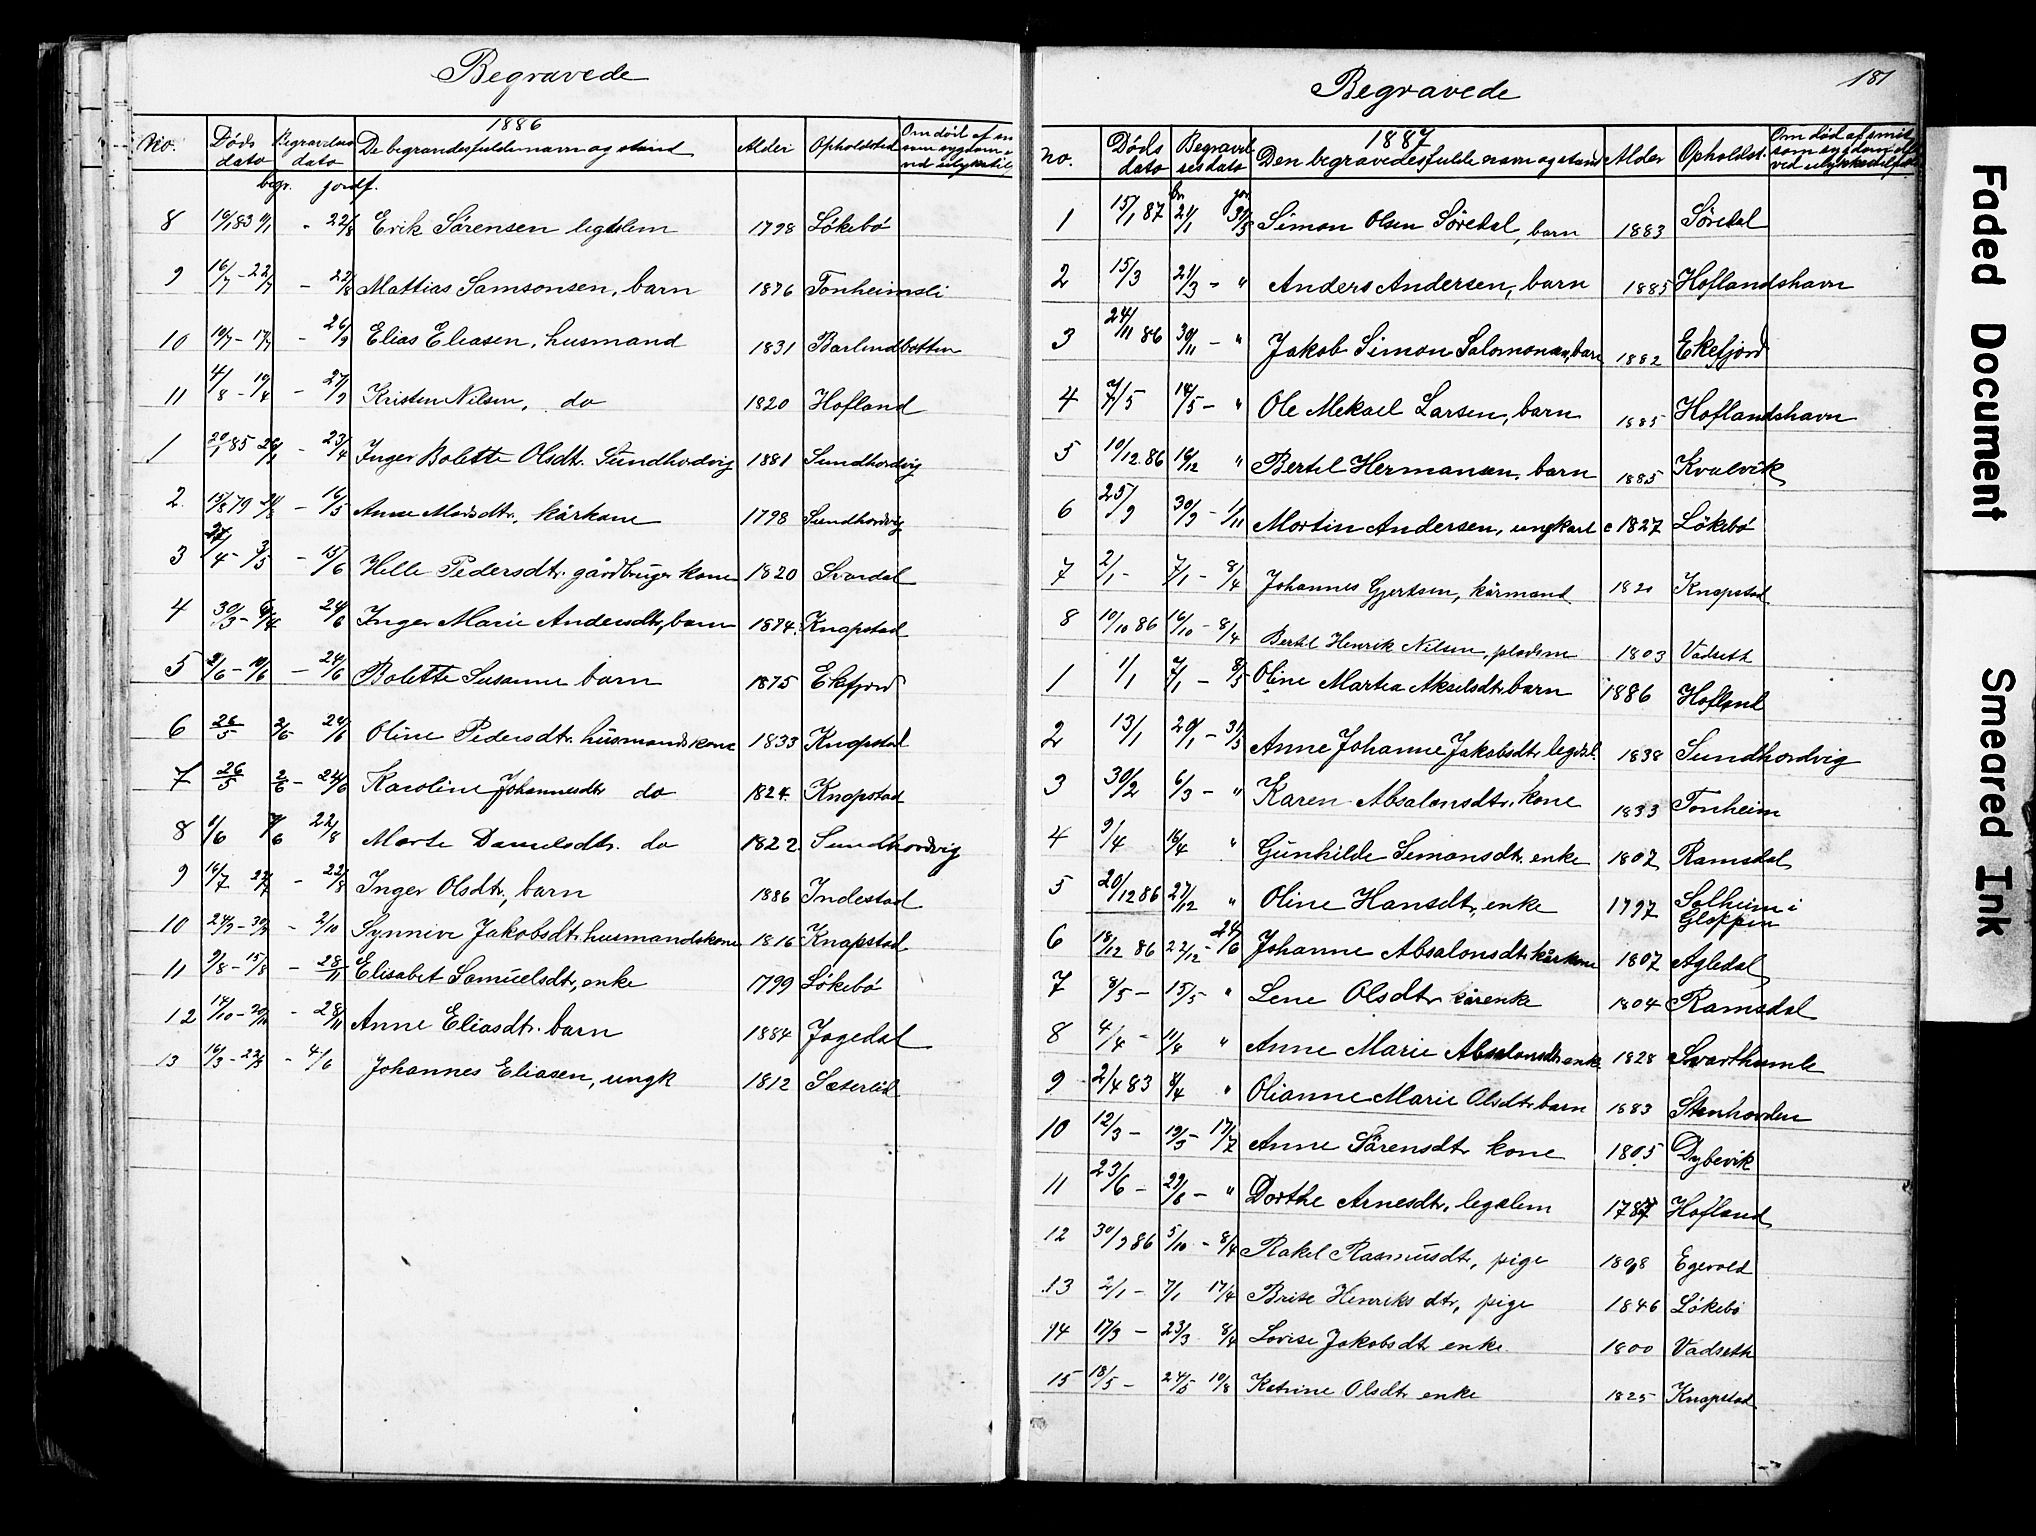 Begravede
1886
No. Døds dato Begravelses dato De begravedes fulde navn og stand Alder Opholdsted Om död af
begr. jordf.
8 16/1 83 - 22/8 Erik Sörensen legdslem 1798 Lökebö
9 16/7 - 22/7 - 22/8 Mattias Samsonsen, barn 1876 Tonheimsli
10 10/7 - 17/7 - 26/9 Elias Eliasen, husmand 1831 Barlindbotten
11 4/8 - - 27/9 Kristen Nilsen, do 1820 Hofland
1 20/1 85 - 23/4 Inger Bolette Olsdtr. Sundhordvig 1881 Sundhordvig
2 79 - 16/5 Anne Madsdtr, kårkone 1798 Sundhordvig
3 27/4 - 3/5 - 15/6 Helle Pedersdtr. gårdbruger kone 1820 Svardal
4 30/3 - 6/4 24/6 Inger Marie Andersdtr, barn 1874. Knapstad
5 2/6 - 10/6 - 24/6 Bolette Susanne barn 1875 Ekefjord
6 26/5 2/6 24/6 Oline Pedersdtr. husmandskone 1833 Knapstad
7 26/5 2/6 - 24/6 Karoline Johannesdtr do 1824. Knapstad
8 1/6 7/6 22/8 Marte Danielsdtr. do 1822 Sundhordvig
9 16/7 22/7 - 22/8 Inger Olsdtr, barn 1886 Indestad
10 24/9 - 30/9 - 2/10 Synneve Jakobsdtr husmandskone 1816 Knapstad
11 9/8 - 15/8 - 28/11 Elisabet Samuelsdtr, enke 1799 Lökebö
12 14/10 - 20/10 - 28/11 Anne Eliasdtr. barn 1884 Jagedal
13 16/3 - 22/3 - 4/6 Johannes Eliasen, ungk 1812 Sæterlid
Begravede
181
1887
No. Døds dato Begravelsesdato Den begravedes fulde navn og stand Alder Opholdst. Om död af smitsom sygdom el. ved ulykkestilfælde
1 15/1 87 21/1 31/5 Simon Olsen Söredal, barn 1883 Söredal
2 15/3 21/3 - " Anders Andersen, barn 1885 Hoflandshavn
3 24/11 86 30/11 - " Jakob Simon Salomonsen, barn 1882 Ekefjord
4 7/5 14/5 - " Ole Mekael Larsen, barn 1885 Hoflandshavn
5 10/12 86 16/12 " Bertel Hermansen, barn 1885 Kvalvik
6 25/9 30/9 - 1/11 Mortin Andersen, ungkarl 1827 Lökebö
7 2/1 - 7/1 - 8/4 Johannes Gjertsen, kårmand 1820 Knapstad
8 10/10 86 16/10 - 8/4 Bertel Henrik Nilsen, 1803 Vadseth
1 1/1 7/1 - 8/5 Oline Martea Akselsdtr barn 1886 Hofland
2 13/1 20/1 - 31/5 Anne Johanne Jakobsdtr legdsl. 1838 Sundhordvig
3 30/2 6/3 - " Karen Absalonsdtr, kone 1833 Tonheim
4 9/4 16/4 " Gunhilde Simonsdtr, enke 1807 Ramsdal
5 20/12 86 27/12 " Oline Hansdtr, enke 1797 Solheim i Gloppen
6 18/12 86 22/12 - 24/6 Johanne Absalonsdtr kårkone 1807 Agledal
7 8/5 - 15/5 " Lene Olsdtr kårenke 1804 Ramsdal
8 4/4 - 11/4 " Anne Marie Absalonsdtr enke 1828 Svarthumle
9 2/4 83 8/4 " Olianne Marie Olsdtr barn 1883 Stenhovden
10 12/3 - 19/3 - 17/7 Anne Sörensdtr kone 1805 Dybevik
11 23/6 - 29/6 - " Dorthe Arnesdtr. legslem 1787 Hofland
12 30/9 86 5/10 - 8/4 Rakel Rasmusdtr, pige 1898 Egevold
13 2/1 - 7/1 17/4 Brite Henriksdtr, pige 1846 Lökebö
14 17/3 - 23/3 8/4 Lovise Jakobsdtr enke 1800 Vadseth
15 18/5 - 24/5 10/8 Katrine Olsdtr enke 1825 Knapstad
Faded Document
Smeared Ink